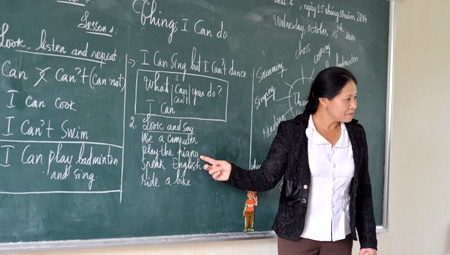 2, ngày 15 tháng 10 năm 2014
Wednesday, October
Things I Can do
Lesson 2
Look, listen and repeat
Can X Can't (Can not)
I Can Cook
I Can't Swim
I Can play badminton
and sing
I Can sing but I Can't dance
What Can you do?
Can't
I Can
2. Look and Say
Use a Computer
play the piano
Speak English
ride a bike
Swimming
Singing
Reading
Chess